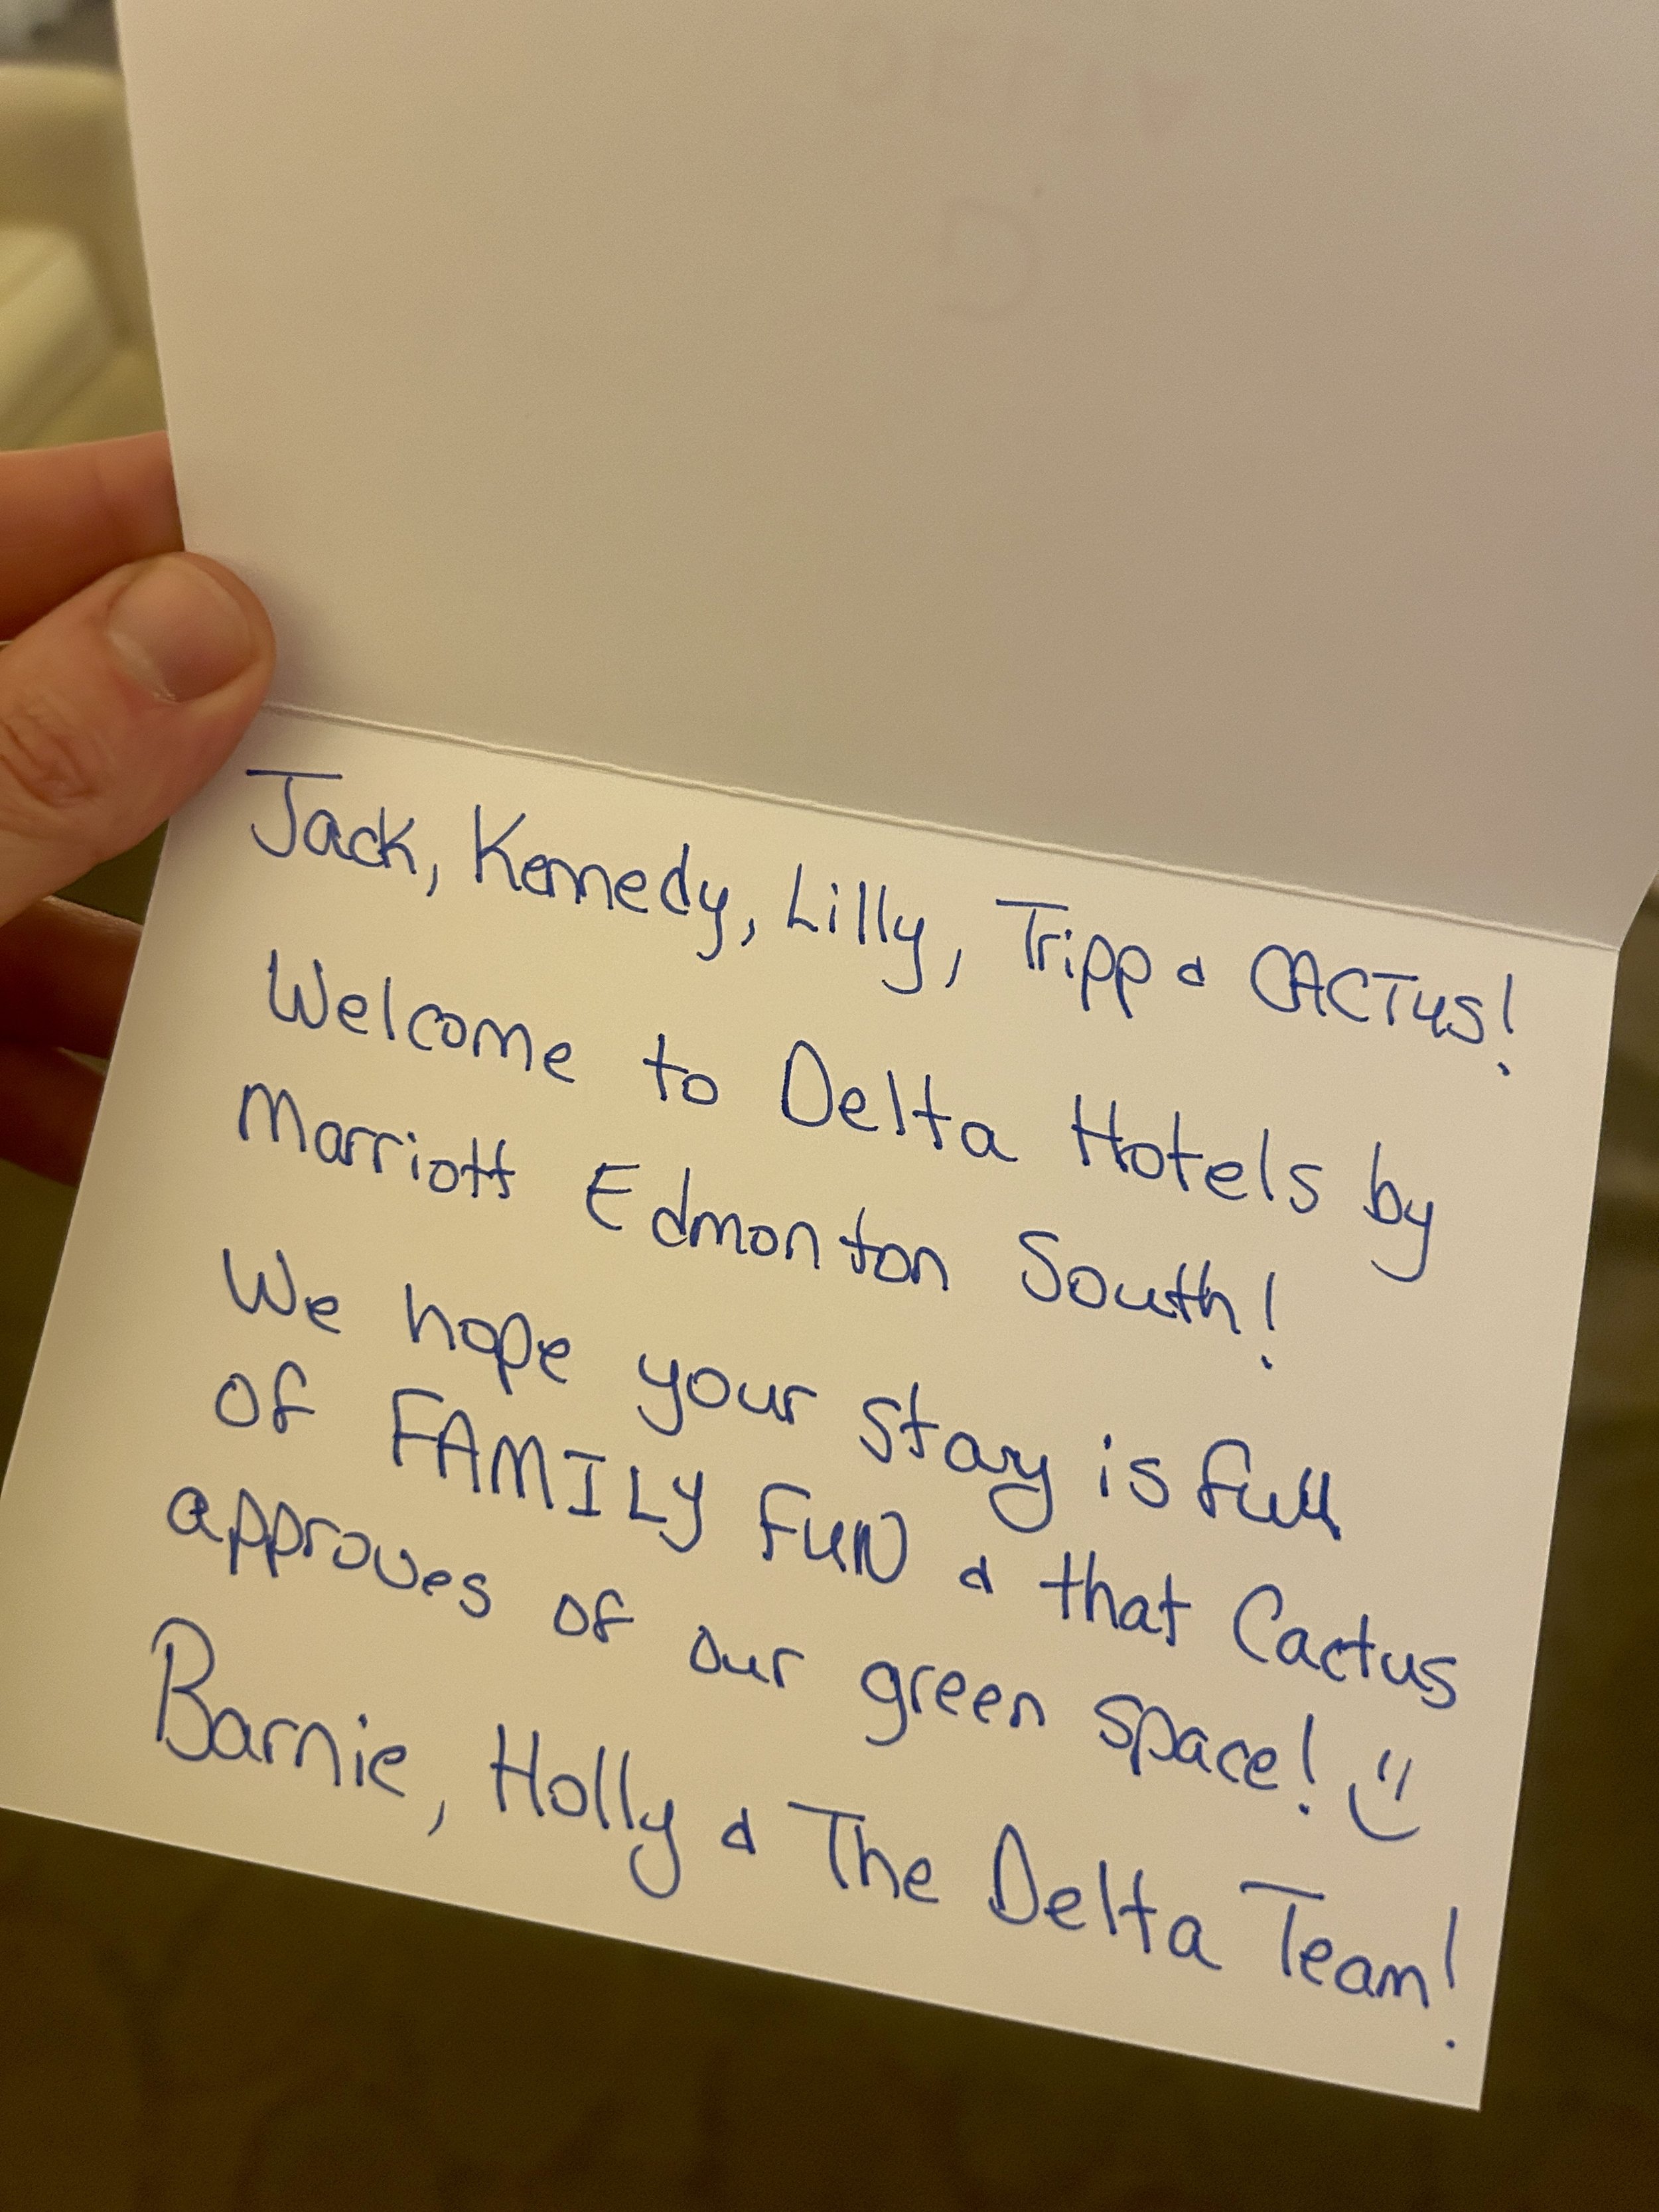 Jack, Kennedy, Lilly, Tripp & CACTUS!
Welcome to Delta Hotels by
Marriott Edmonton South!
We hope your stay is full
of FAMILY FUN & that Cactus
approves of our green space! :)
Barnie, Holly & The Delta Team!